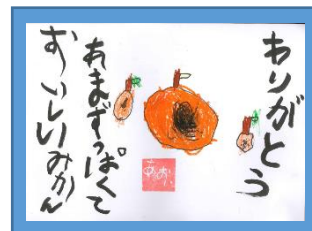 ありがとう
あまずっぱくて
おいしいみかん